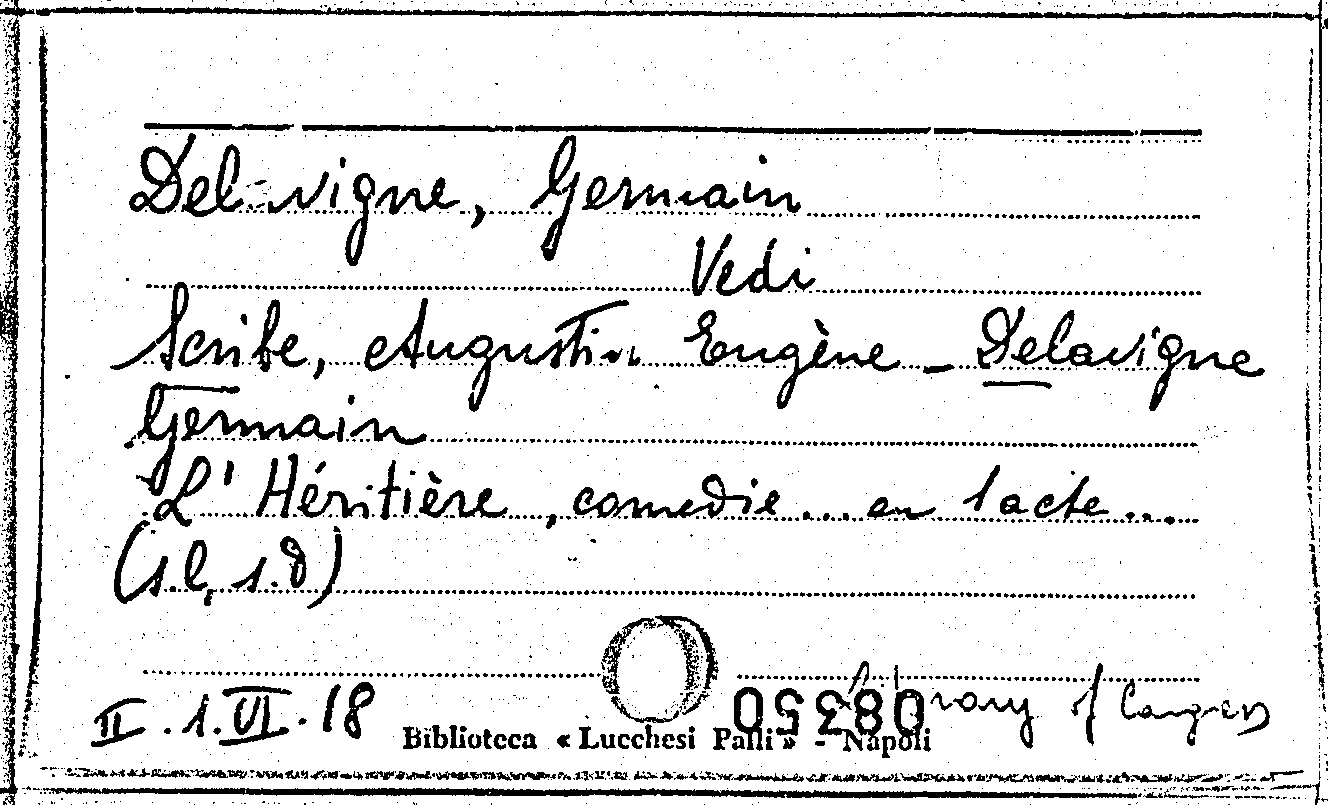 Delavigne, Germain
Vedi
Scribe, Augustin Eugène - Delavigne
Germain
L'Héritière, comedie... en 1 acte...
(s.l, s.d)
II . 1. VI . 18
Library of Congress
08350
Biblioteca « Lucchesi Palli » - Napoli